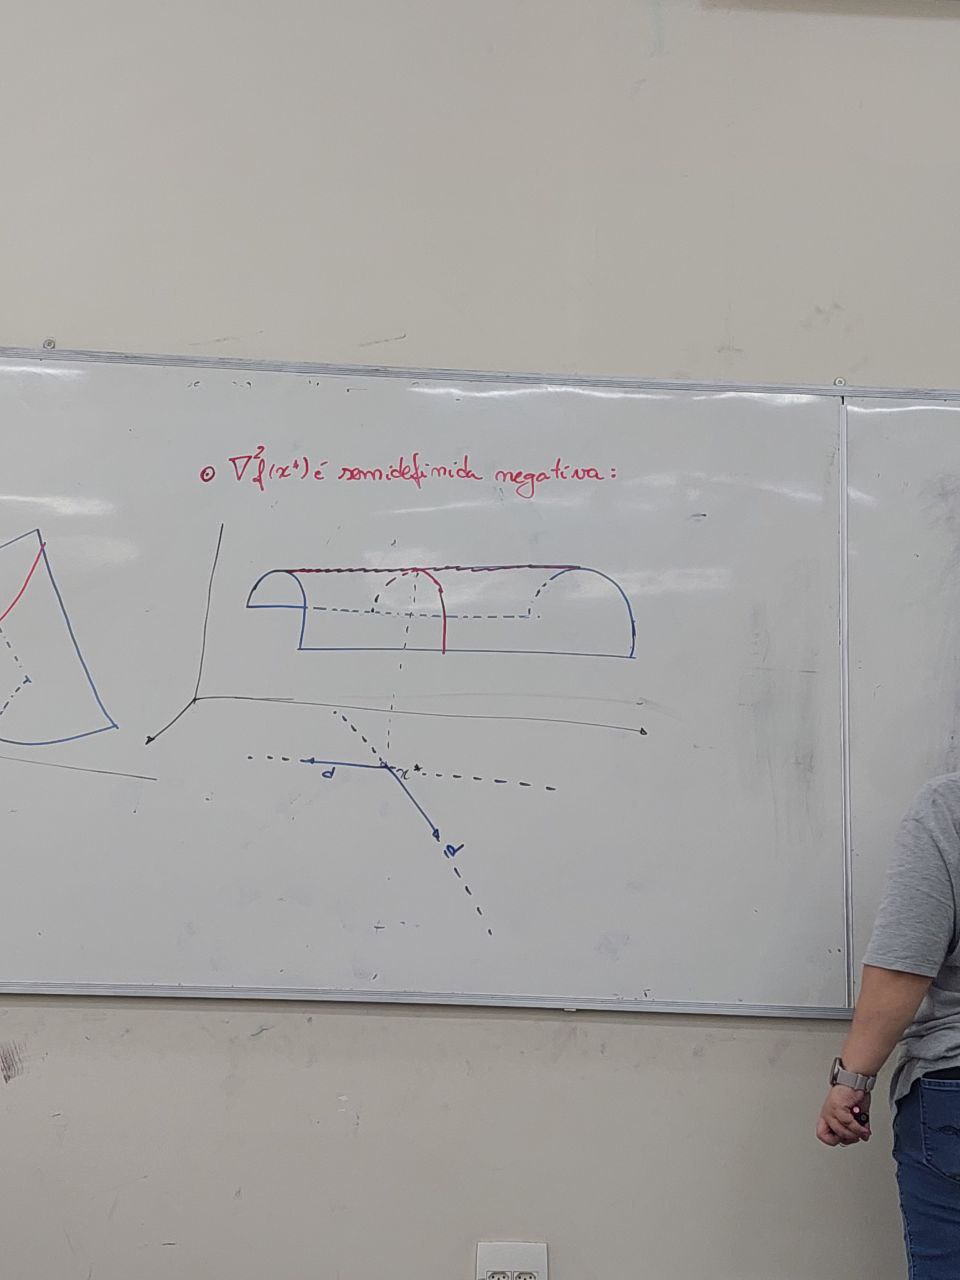 ⊙ ∇²f(x*) é semidefinida negativa:
d
x*